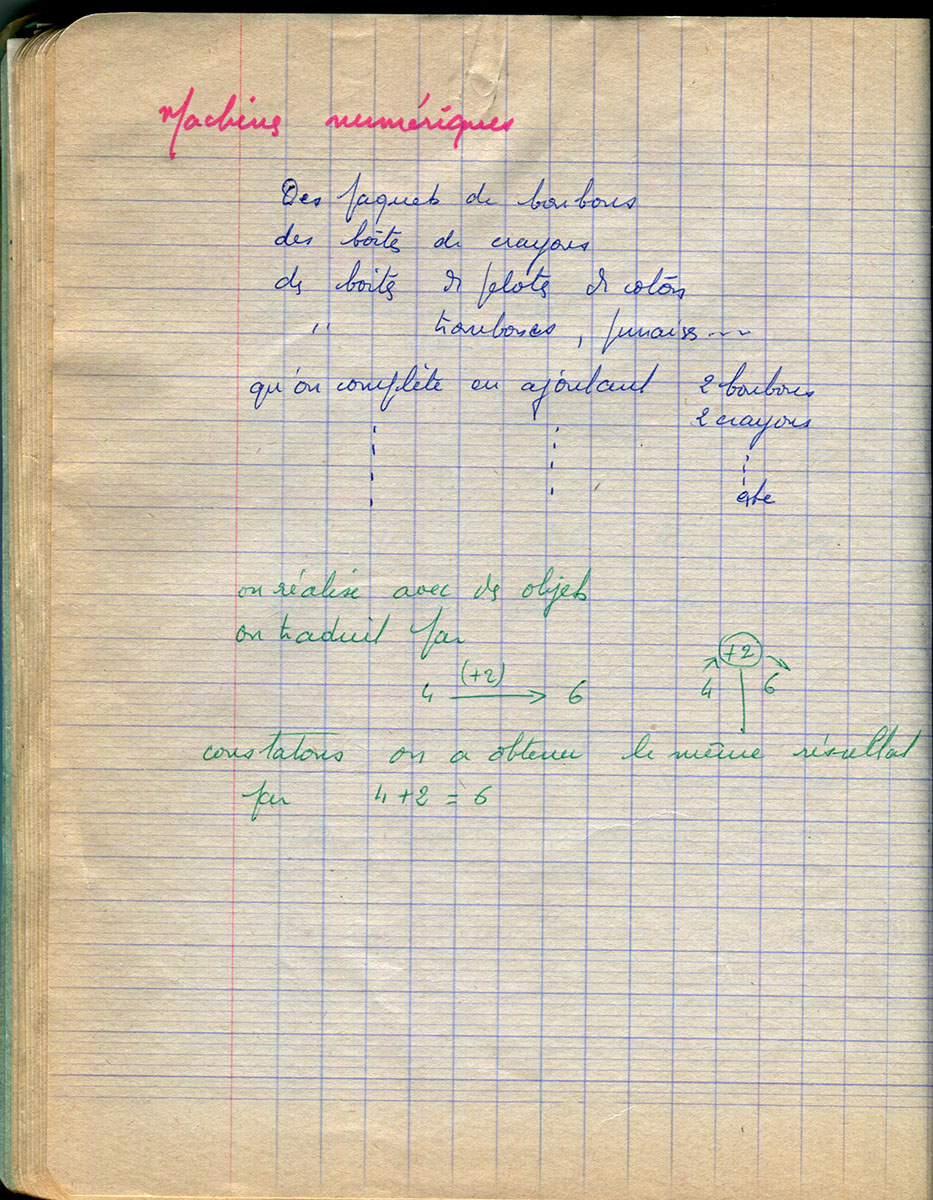 Machines numériques
Des paquets de bonbons
des boîtes de crayons
des boîtes de pelotes de coton
" trombones, punaises ---
qu'on complète en ajoutant 2 bonbons
2 crayons
etc
on réalise avec des objets
on traduit par
(+2)
4 → 6
+2
4 6
constatons on a obtenu le même résultat
par 4 + 2 = 6